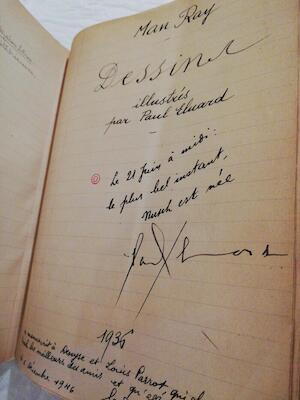 Man Ray
Dessins
illustrés
par Paul Eluard
Le 21 Juin à midi:
le plus bel instant,
Nusch est née
Paul Eluard
1936
manuscrit à Denyse et Louis Parrot qui
les meilleurs des amis et qu'
1946